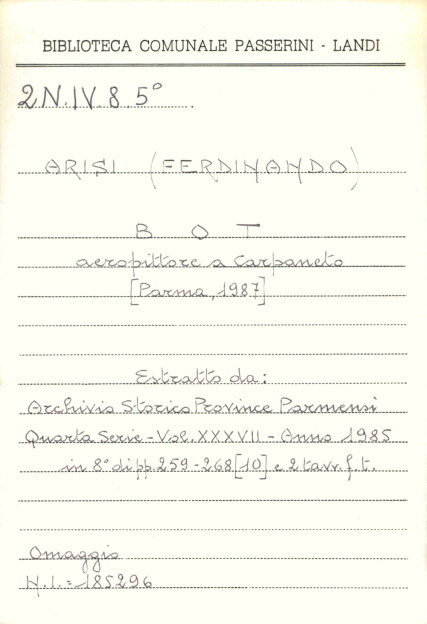 BIBLIOTECA COMUNALE PASSERINI - LANDI
2N.IV.8.5°
ARISI (FERDINANDO)
B O T
aeropittore a Carpaneto
[Parma, 1987]
Estratto da:
Archivio Storico Province Parmensi
Quarta Serie - Vol. XXXVII - Anno 1985
in 8° di pp. 259-268 [10] e 2 tavv. f. t.
Omaggio
N.I. = 185296